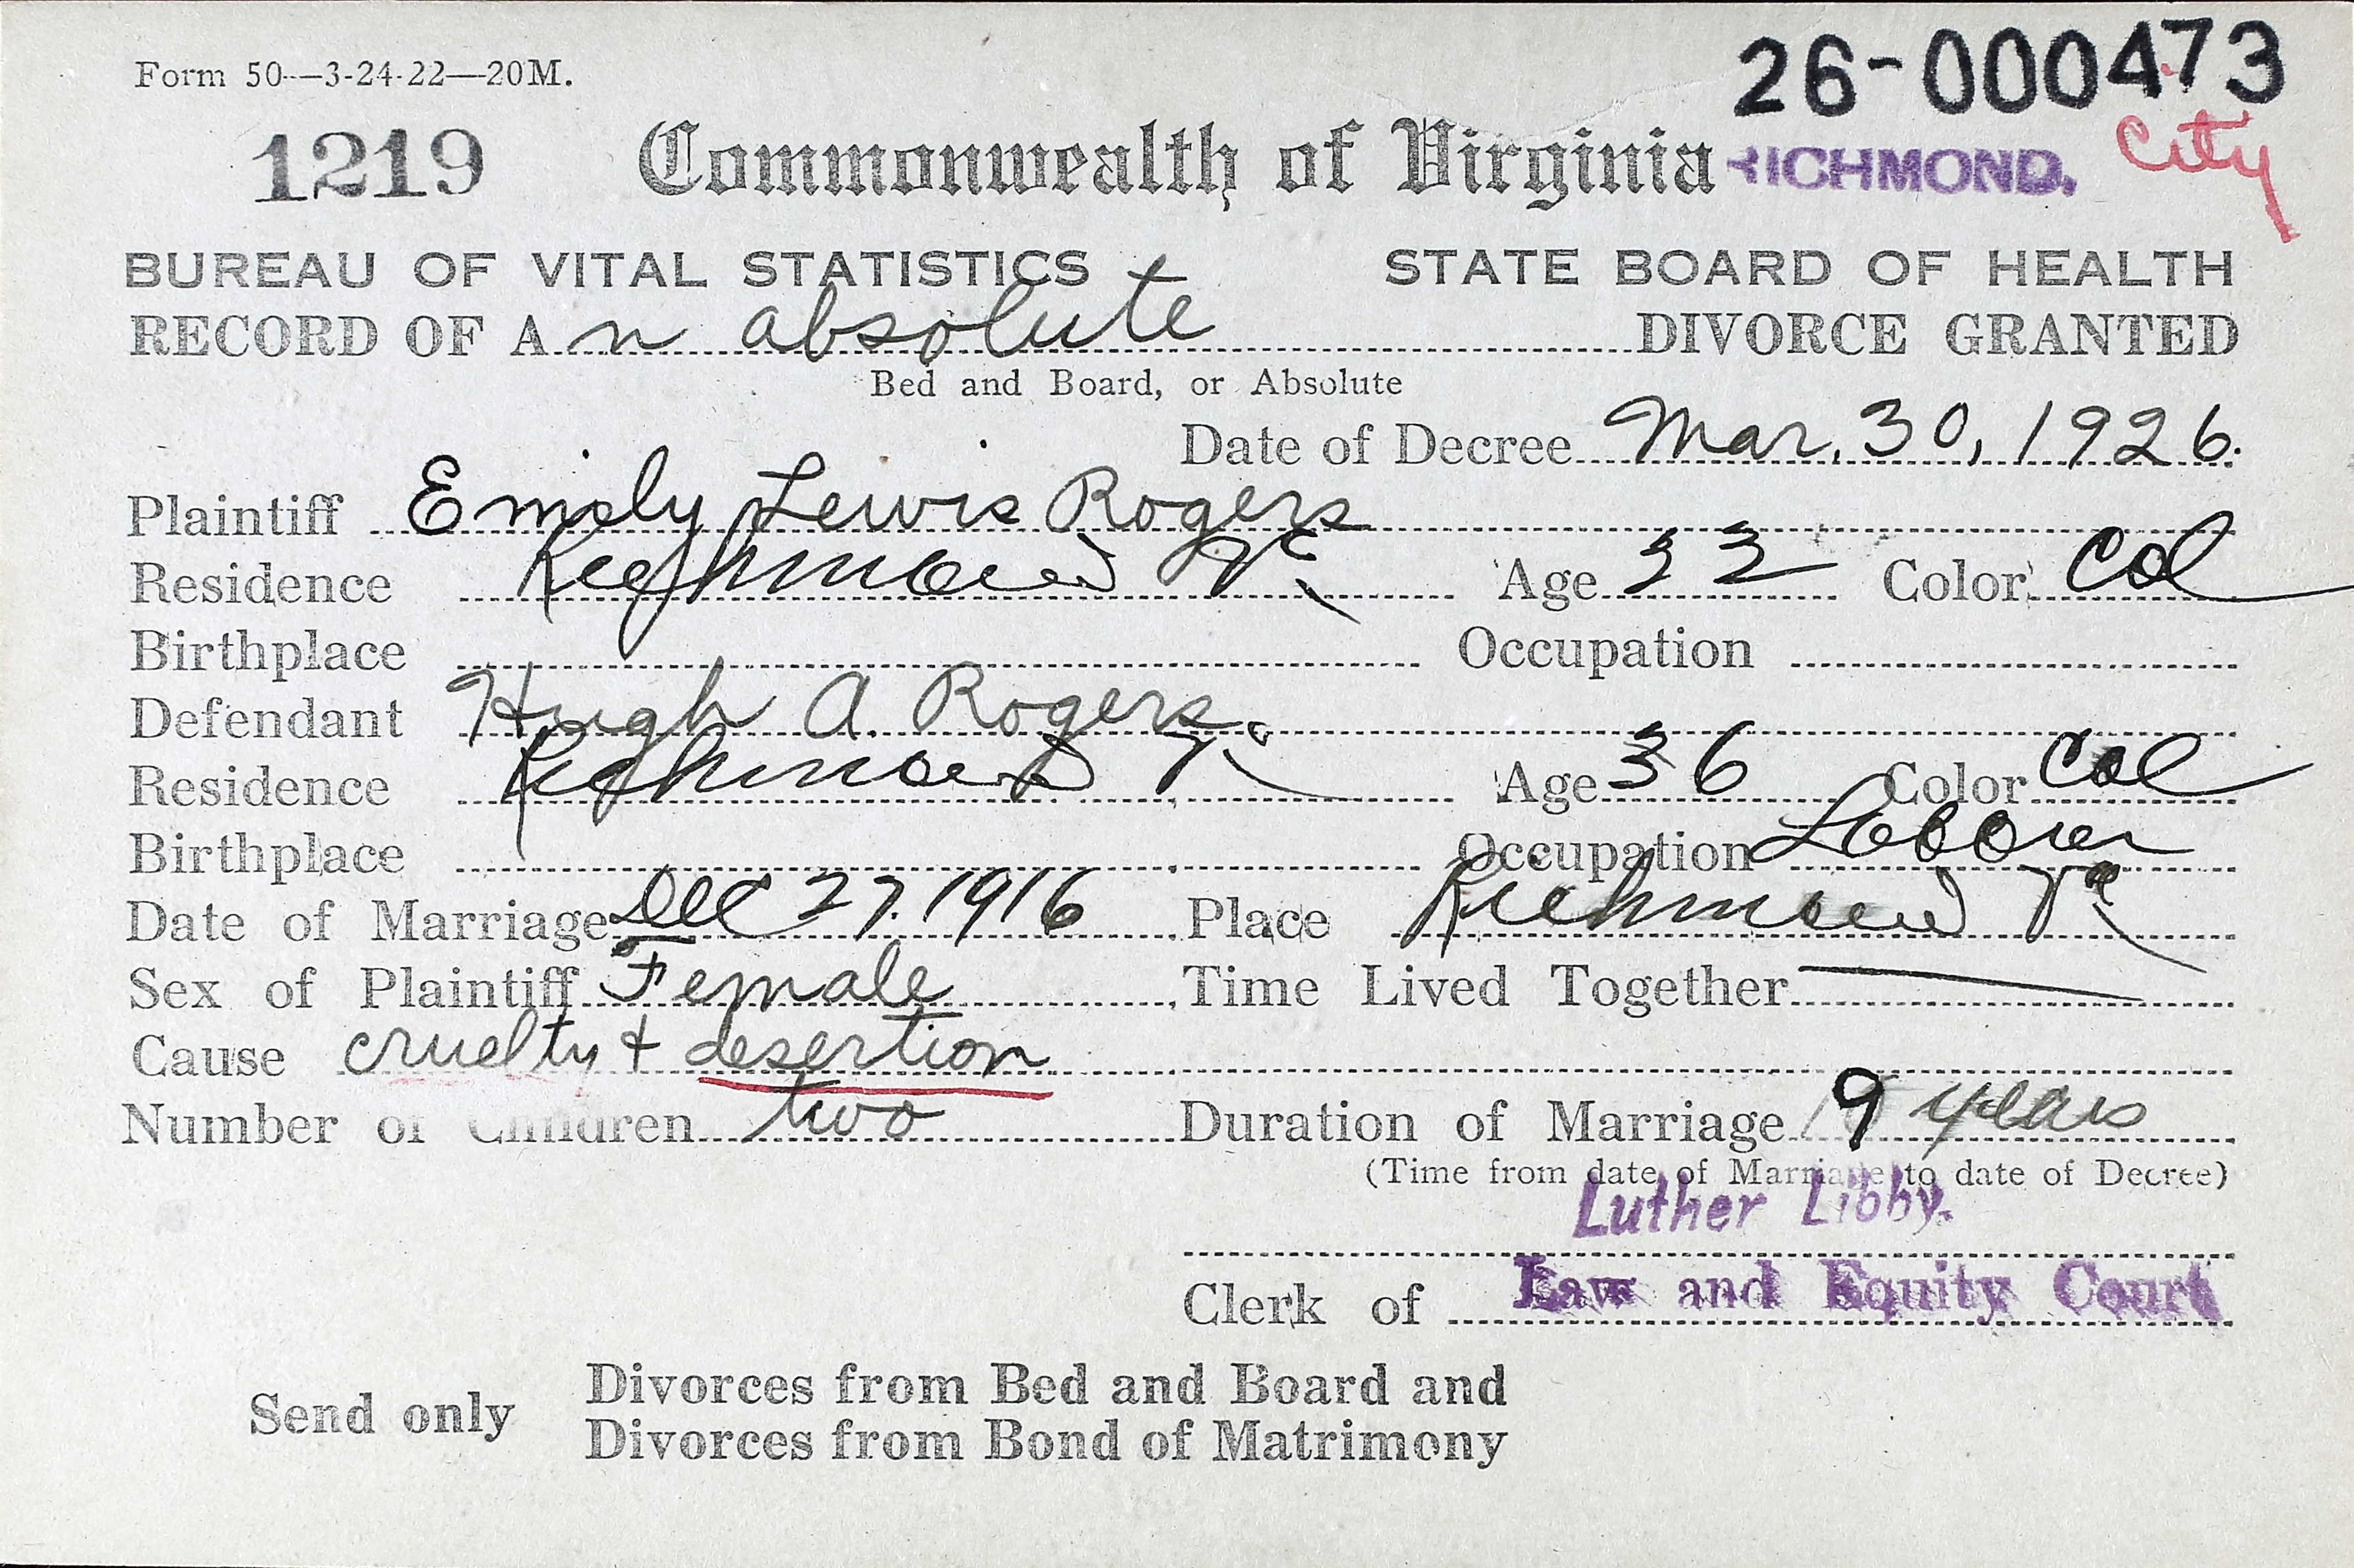 Form 50—3-24-22—20M.
26-000473
1219 Commonwealth of Virginia RICHMOND. City
BUREAU OF VITAL STATISTICS STATE BOARD OF HEALTH
RECORD OF An absolute DIVORCE GRANTED
Bed and Board, or Absolute
Date of Decree Mar. 30, 1926.
Plaintiff Emily Lewis Rogers
Residence Richmond Va Age 32 Color Col
Birthplace Occupation
Defendant Hugh A. Rogers
Residence Richmond Va Age 36 Color Col
Birthplace Occupation Laborer
Date of Marriage Dec 27. 1916 Place Richmond Va
Sex of Plaintiff Female Time Lived Together —
Cause cruelty + desertion
Number of Children two Duration of Marriage 9 years
(Time from date of Marriage to date of Decree)
Luther Libby.
Clerk of Law and Equity Court
Send only Divorces from Bed and Board and
Divorces from Bond of Matrimony